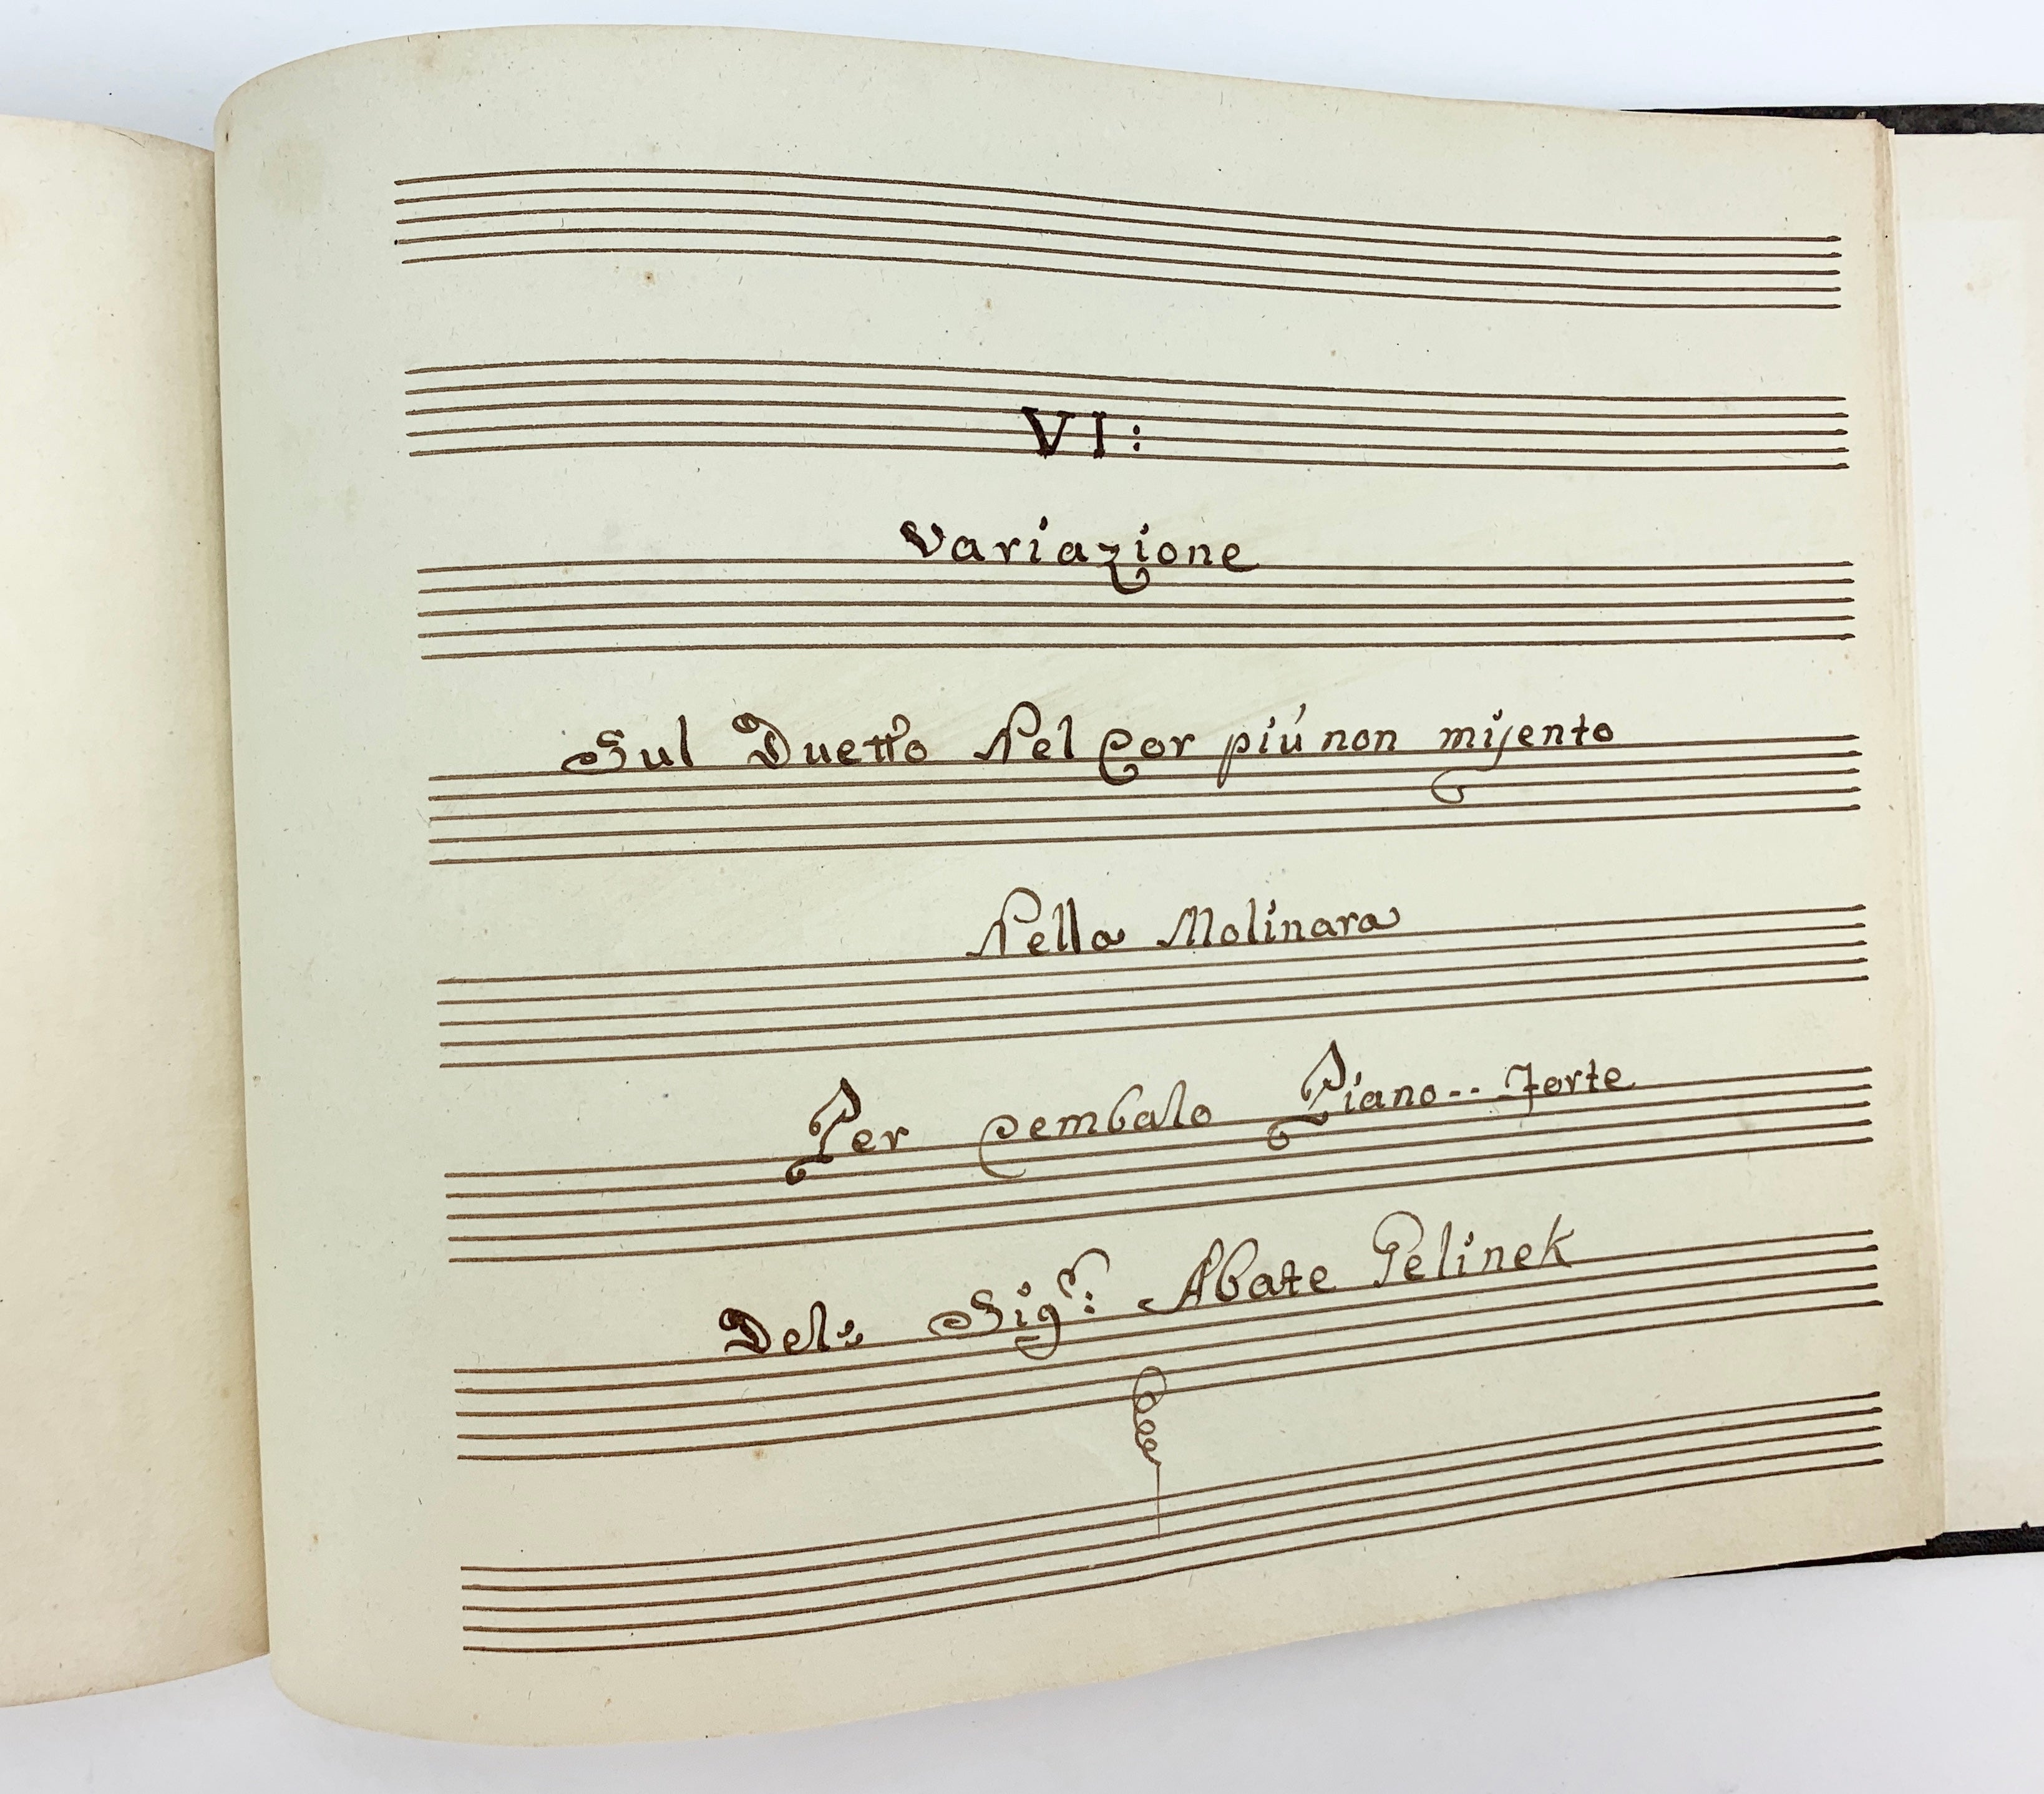 VI:
Variazione
Sul Duetto Nel Cor piú non mi sento
Nella Molinara
Per Cembalo Piano-- Forte
Del: Sigr: Abate Gelinek